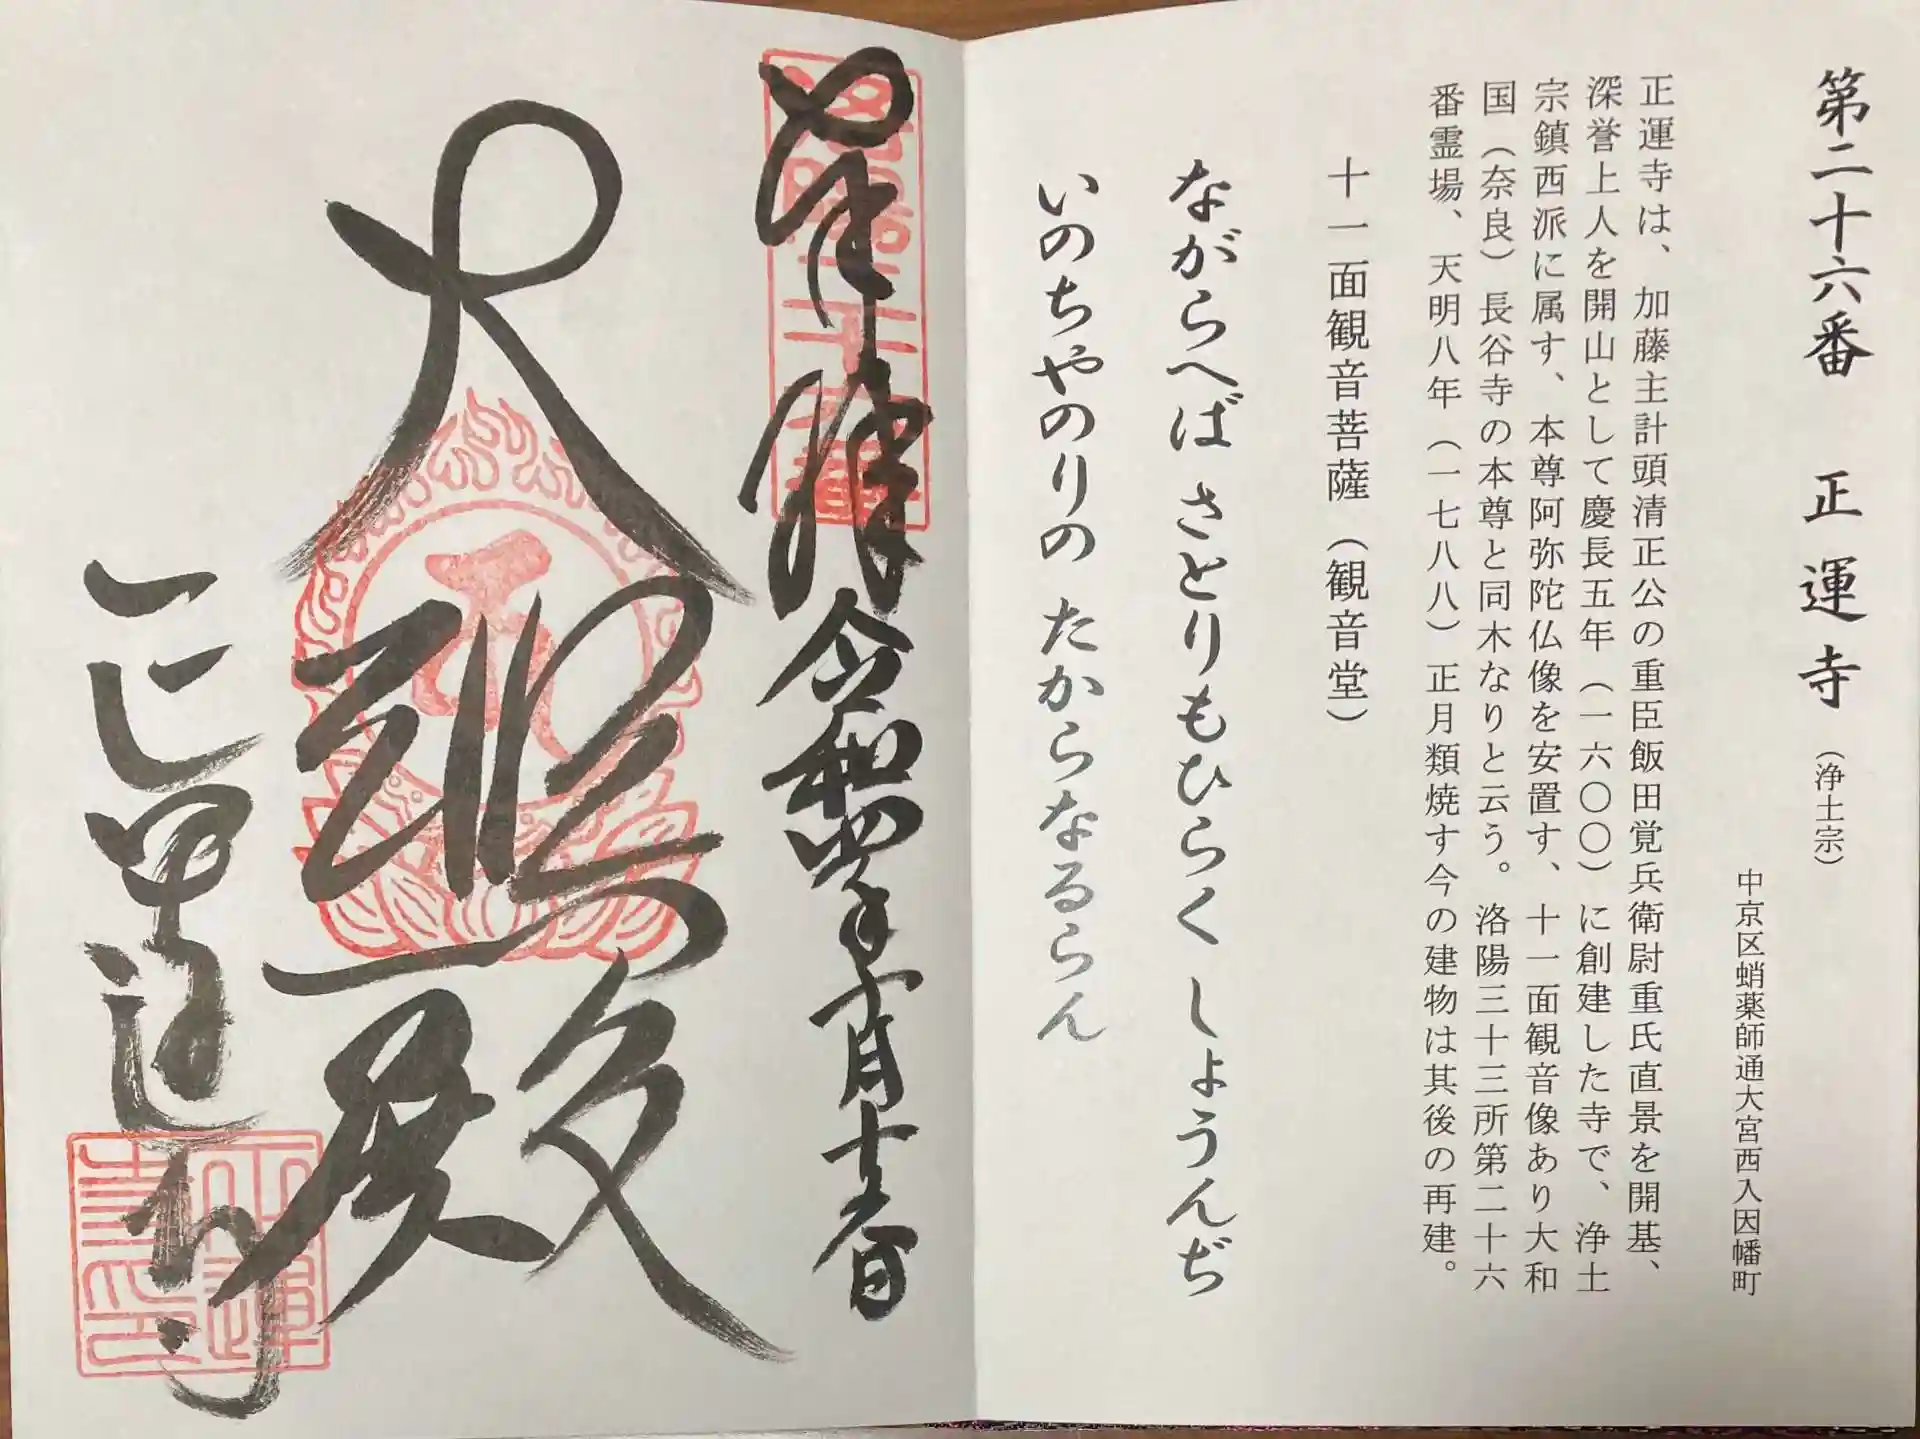 第二十六番　正運寺（浄土宗）
中京区蛸薬師通大宮西入因幡町
正運寺は、加藤主計頭清正公の重臣飯田覚兵衛尉重氏直景を開基、
深誉上人を開山として慶長五年（一六〇〇）に創建した寺で、浄土
宗鎮西派に属す、本尊阿弥陀仏像を安置す、十一面観音像あり大和
国（奈良）長谷寺の本尊と同木なりと云う。洛陽三十三所第二十六
番霊場、天明八年（一七八八）正月類焼す今の建物は其後の再建。
十一面観音菩薩（観音堂）
ながらへば さとりもひらく しょうんぢ
いのちやのりの たからなるらん
洛陽二十六番
奉拝 令和四年十月十六日
大悲殿
正運寺
正運寺印